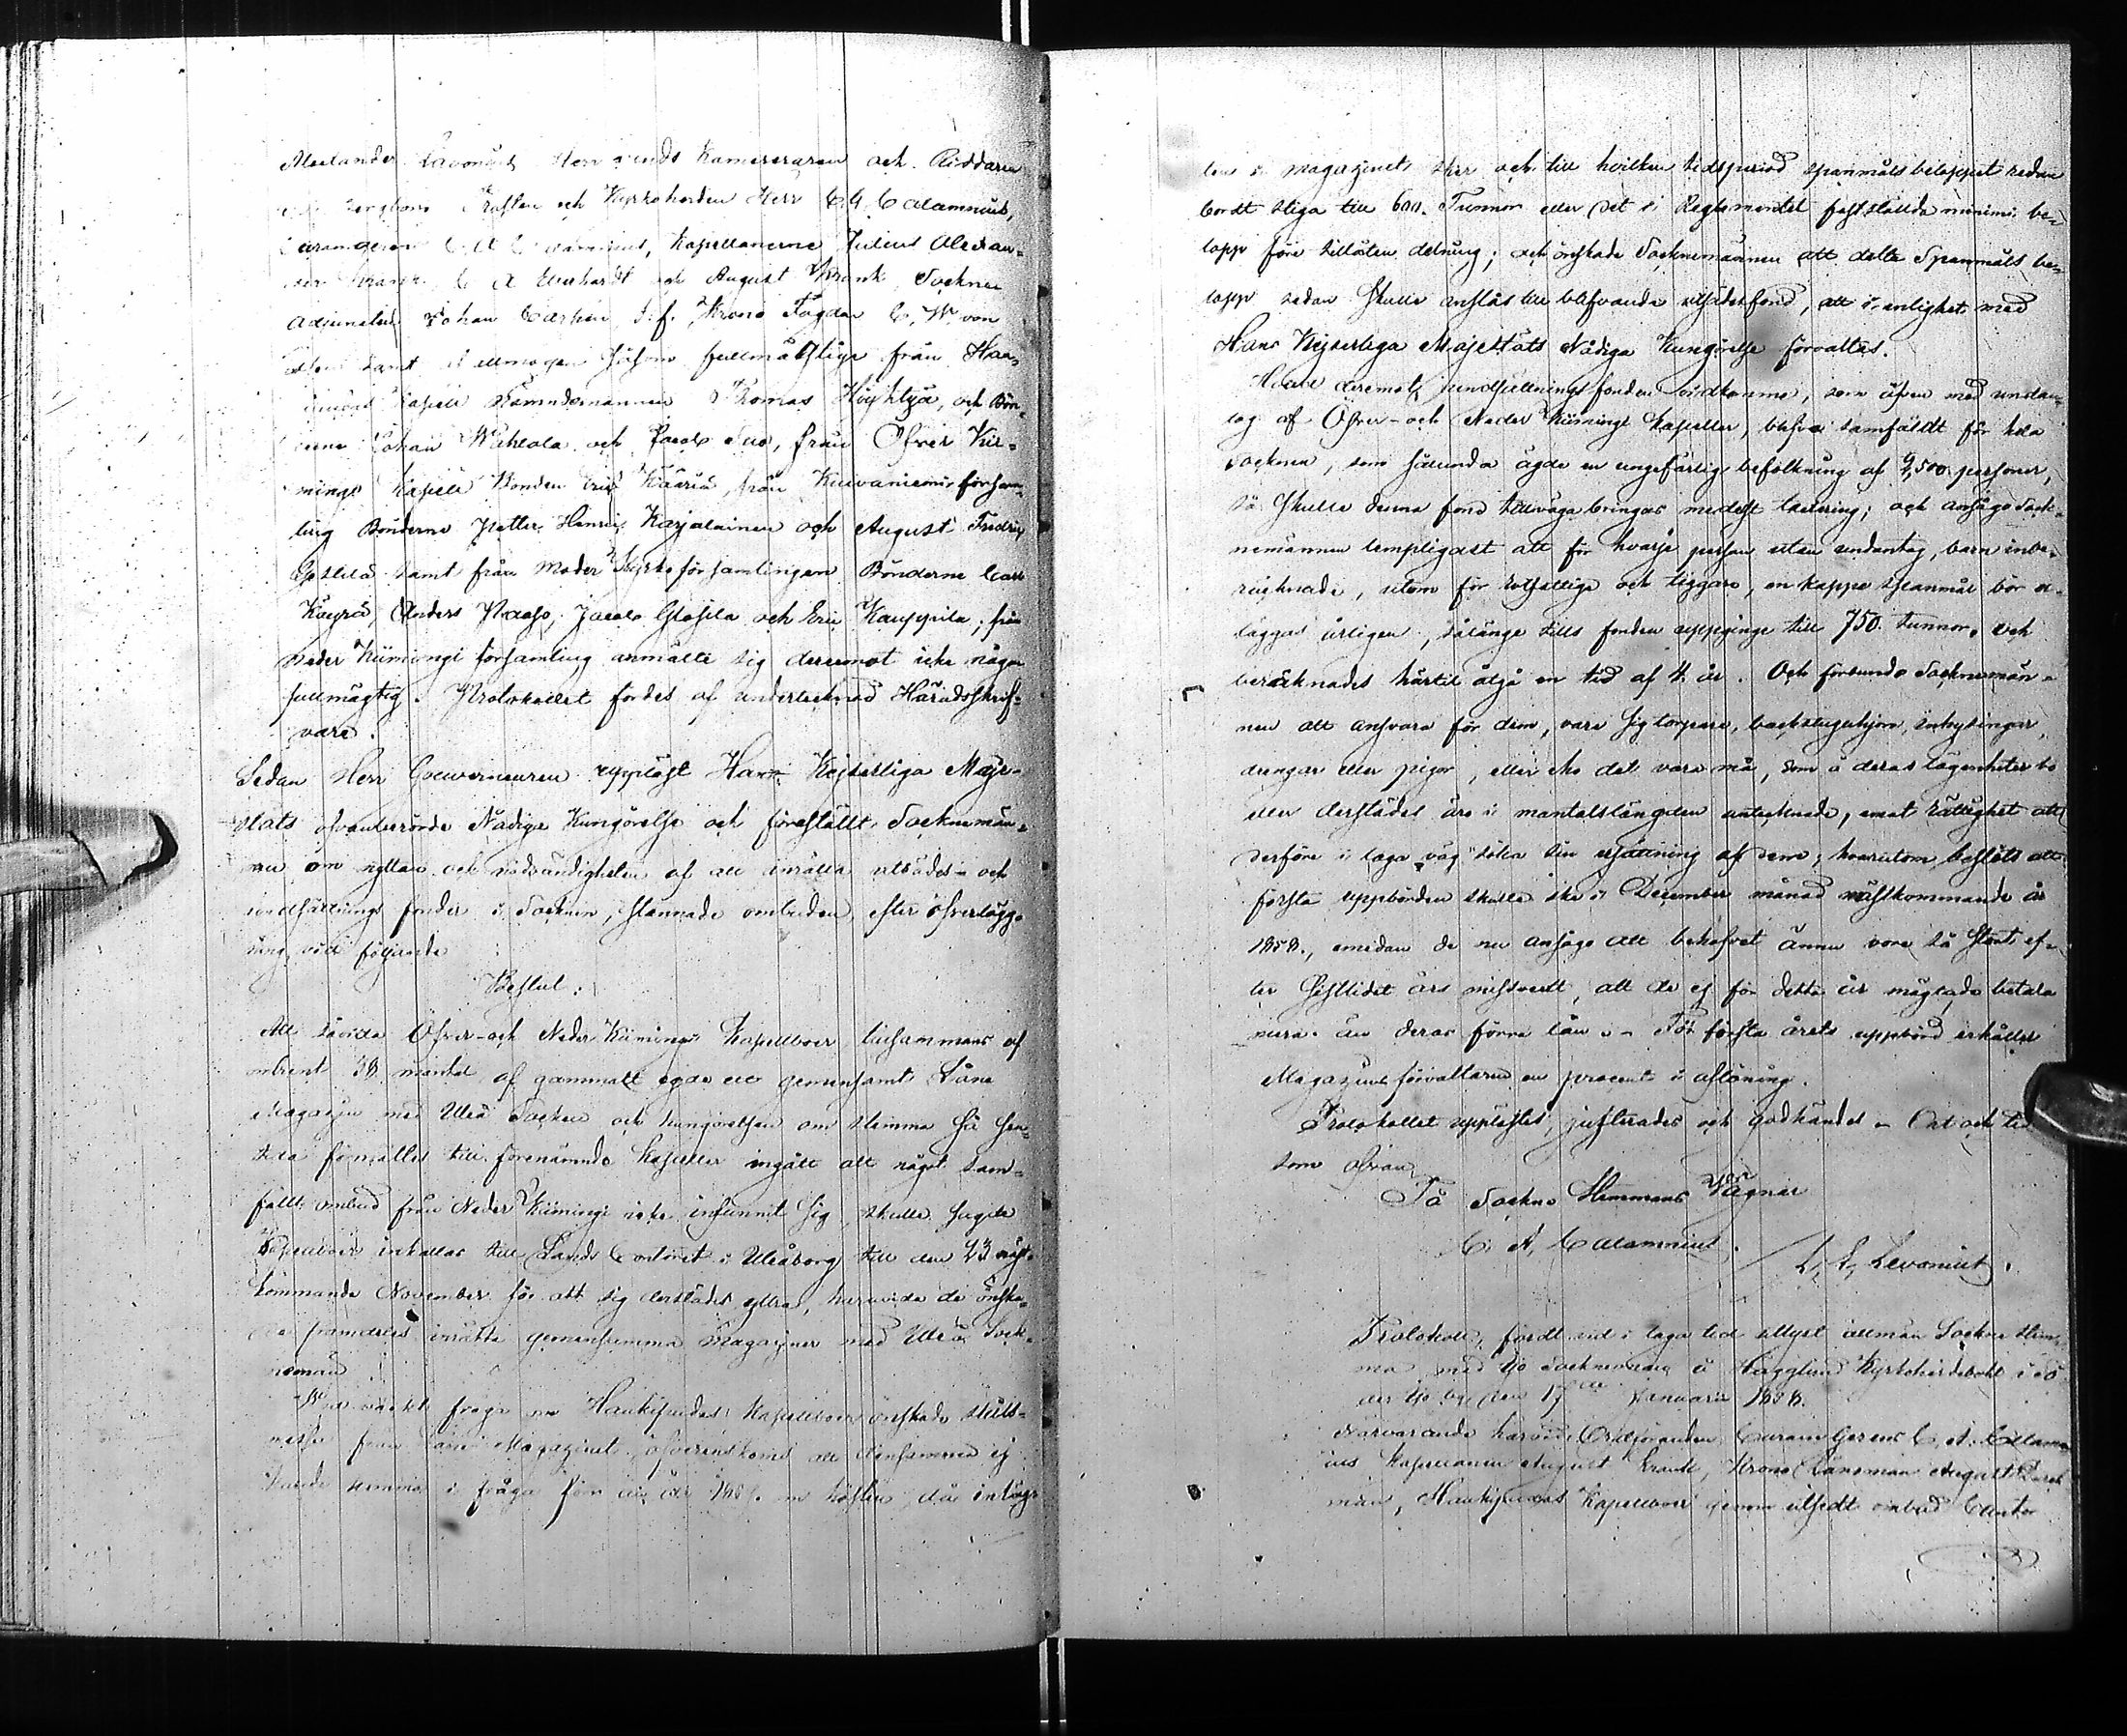 Herr Lands Kamereraren och Riddaren
Prosten och Kyrkoherden Herr C. G. Calamnius,
Kapellanerne Julius Alexan-
C A Eberhardt och August Krank, Sockne
Adjuncten Johan t. f. Krono Fogden C. W. von
samt af allmogen såsom fullmägtige från Hau-
kipudas Kapell Nämndemannen Thomas Höyhtyä, och Bön-
derne Johan och Jacob Suo, från Öfver Kii-
minge Kapell Bonden Eric Kääriä, från Kuivaniemi försam-
ling Bönderne Petter Henric Karjalainen och August Fredric
samt från Moder Kyrko församlingen Bönderne Carl
Anders Paaso, Jacob och Eric Kauppila; från
Neder Kiimingi församling anmälte sig deremot icke någon
fullmägtig. Protokollet fördes af undertecknad Häradsskrif-
vare.
Sedan Herr Gouverneuren uppläst Hans Kejserliga Maje-
stäts ofvanberörde Nådiga Kungörelse och föreställt Socknemän-
nen om nyttan och nödvändigheten af att inrätta utsädes- och
undsättnings fonder i Socknen, stannade ombuden efter öfverlägg-
ning vid följande
Beslut:
Att såvida Öfver- och Neder Kiimingi Kapellboer tillsammans af
omkring 38 mantal af gammalt egde ett gemensamt Låne
Magazin med Uleå Socken och kungörelsen om stämma så sen-
förmält till förenämnde Kapeller ingått att något sam-
fällt ombud från Neder Kiimingi icke infunnit sig, skulle
Kapellboer inkallas till Lands Contoret i Uleåborg till den 23 näst-
kommande November för att sig derstädes yttra, huruvida de önska
framdeles inrätta gemensamma Magaziner med Uleå Sock-
nemän
Wid väckt fråga om Haukipudas Kapellboers önskade skils-
messa från Låne Magazinet, öfverenskoms att densamma ej
kunde komma i fråga förr än år 185 om hösten, då inlägg-
ten i magazinet sker och till hvilken tidsperiod spanmålsbeloppet redan
bordt stiga till 600. Tunnor eller det i Reglementet fastställda minimi be-
lopp före tillåten delning; och önskade Socknemännen att detta Spanmåls be-
lopp sedan skulle anslås till blifvande utsädesfond, att i enlighet med
Hans Kejserliga Majestäts Nådiga Kungörelse förvaltas.
Hvad deremot undsättningsfonden vidkomme, som äfven med undan-
tag af Öfver- och Neder Kiimingi Kapeller, blefve samfäldt för hela
Socknen, som sålunda ägde en ungefärlig befolkning af 9,500 personer,
så skulle denna fond tillvägabringas medelst taxering; och ansågo Sock-
nemännen lämpligast att för hvarje person utan undantag, barn inbe-
räknade, utom för rotfattige och tiggare, en kappe spanmål bör er-
läggas årligen, sålänge tills fonden uppginge till 750. tunnor, och
beräknades härtil åtgå en tid af 4. år. Och förbundo Socknemän-
nen att ansvara för dem, vare sig torpare, backstuguhjon, inhysingar,
drengar eller pigor, eller eho det vara må, som å deras lägenheter bo
eller derstädes äro i mantalslängden antecknade, emot rättighet att
derföre i laga väg söka sin ersättning af dem; hvarutom beslöts att
första uppbörden skulle ske i December månad nästkommande år
1858., emedan de nu ansågo att behofvet ännu vore så stort ef-
ter sistlidet års missvext, att de ej för detta år mägtade betala
mera än deras förra lån.- För första årets uppbörd erhåller
Magazins förvaltaren en procent i aflöning.
Protokollet upplästes, justerades och godkändes - Ort och tid
som ofvan
På Sockne Stemmans Vägnar
C. A. Calamnius. L. L. Levonius.
Protokoll, fördt vid i laga tid utlyst allmän Sockne stem-
ma med Ijo Socknemän å Hägglund Kyrkoherdeboht i Sö-
der Ijo by den 17de Januarii 1858.
Närvarande härvid Ordföranden, Curam Gerens C. A. Calamn-
ius Kapellanen August Krank, Krono Länsman August
man, Haukipudas Kapellboer genom utsedt ombud Cantor